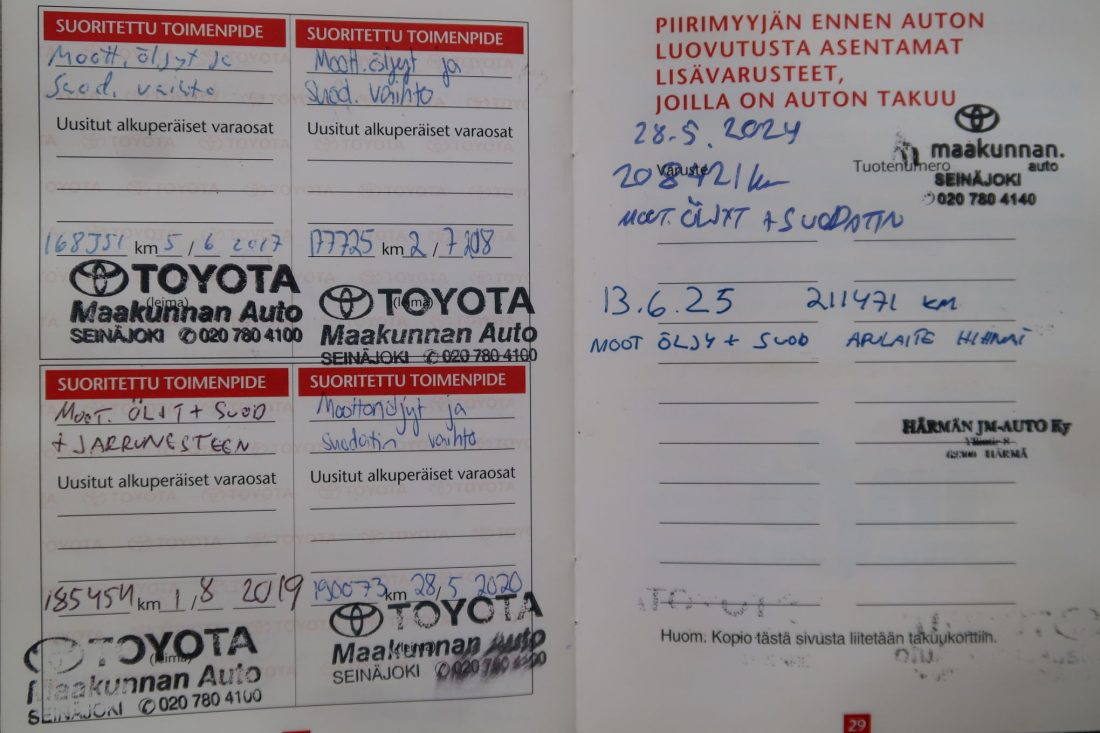 SUORITETTU TOIMENPIDE
Moott. öljyt ja
Suod. vaihto
Uusitut alkuperäiset varaosat
168351 km 5 / 6 2017
(leima)
TOYOTA
Maakunnan Auto
SEINÄJOKI ✆ 020 780 4100
SUORITETTU TOIMENPIDE
Moott. öljyt ja
suod. vaihto
Uusitut alkuperäiset varaosat
177725 km 2 / 7 2018
(leima)
TOYOTA
Maakunnan Auto
SEINÄJOKI ✆ 020 780 4100
SUORITETTU TOIMENPIDE
MOOT. ÖLJYT + SUOD
+ JARRUNESTEEN
Uusitut alkuperäiset varaosat
185454 km 1 / 8 2019
(leima)
TOYOTA
Maakunnan Auto
SEINÄJOKI ✆ 020 780 4100
SUORITETTU TOIMENPIDE
Moottoriöljyt ja
suodatin vaihto
Uusitut alkuperäiset varaosat
190073 km 28 / 5 2020
TOYOTA
Maakunnan Auto
SEINÄJOKI ✆ 020 780 4100
PIIRIMYYJÄN ENNEN AUTON
LUOVUTUSTA ASENTAMAT
LISÄVARUSTEET,
JOILLA ON AUTON TAKUU
28.5.2024
Varuste Tuotenumero
208421 km
MOOT. ÖLJYT + SUODATIN
maakunnan.
auto
SEINÄJOKI
✆ 020 780 4140
13.6.25 211471 KM
MOOT ÖLJY + SUOD APULAITE HIHNAT
HÄRMÄN JM-AUTO Ky
HÄRMÄ
Huom. Kopio tästä sivusta liitetään takuukorttiin.
29